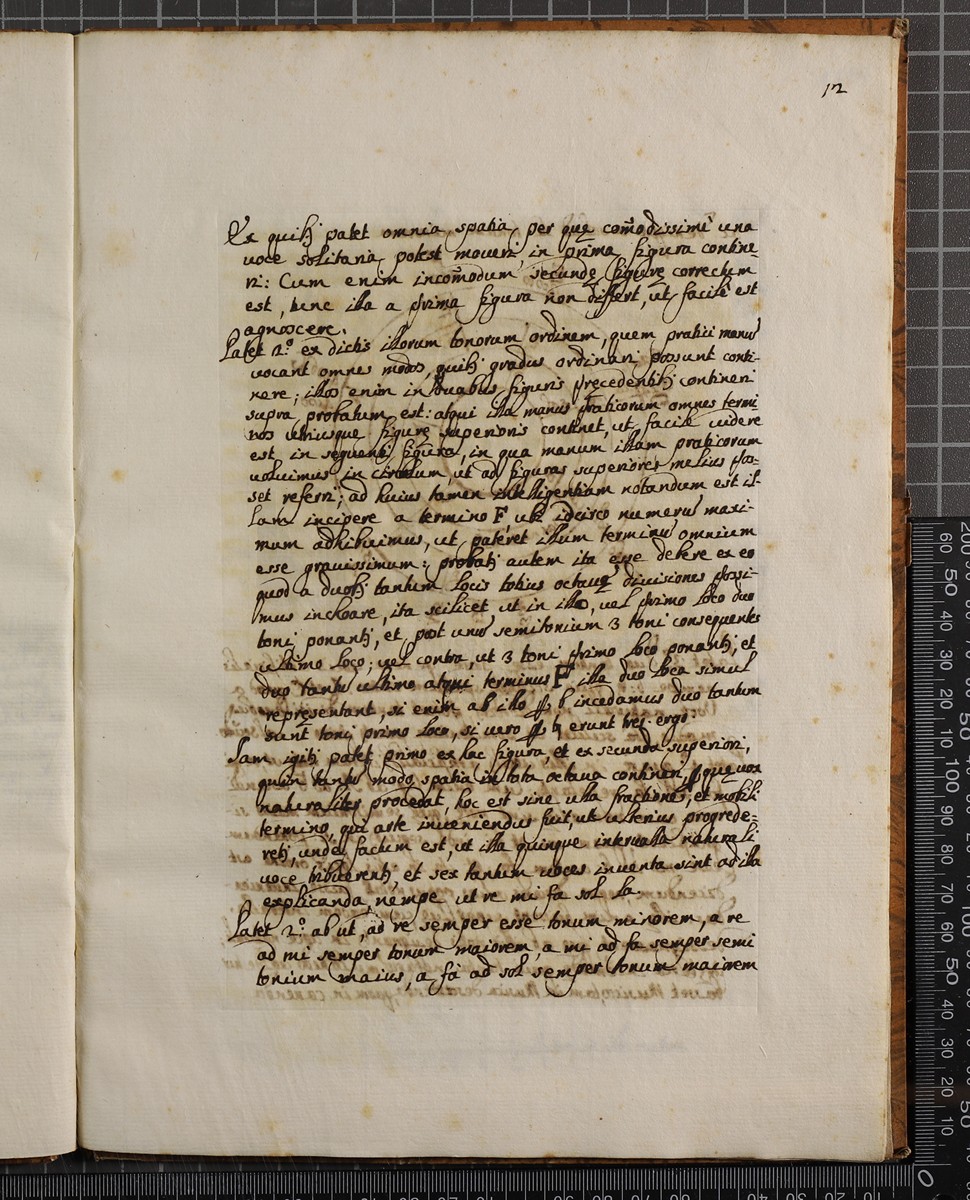 12
Ex quibꝫ patet omnia spatia, per quę com̃odissimè una
voce solitaria potest moveri, in prima figura contine-
ri: Cum enim incom̃odum secundę figurę correctum
est, hinc illa a prima figura non differt, ut facilè est
agnoscere.
Patet 2.º ex dictis illorum tonorum ordinem, quem pratici manū
vocant omnes modos, quibꝫ gradus ordinari possunt conti-
nere; illos enim in duabus figuris precedentibꝫ contineri
supra probatum est: atqui illa manus praticorum omnes termi
nos utriusque figurę superioris continet, ut facilè videre
est, in sequenti figura, in qua manum illam praticorum
voluimus in circulum, ut ad figuras superiores melius pos-
set referri; ad huius tamen intelligentiam notandum est il-
lam incipere a termino F, ubi idcirco numerū maxi-
mum adhibuimus, ut pateret illum terminū omnium
esse gravissimum; probatꝫ autem ita esse debere ex eo
quod a duobꝫ tantum locis totius octavę divisiones possi-
mus inchoare, ita scilicet ut in illa, vel primo loco duo
toni ponantꝫ, et post unū semitonium 3 toni consequentes
ultimo loco; vel contra, ut 3 toni primo loco ponantꝫ, et
duo tantū ultimo atqui terminus F illa duo loca simul
repręsentant, si enim ab illo ꝑ b incedamus duo tantum
sunt toni primo loco, si vero ꝑ ♮ erunt tres. ergo.
Iam igitꝫ patet primo ex hac figura, et ex secunda superiori,
quinꝫ tantū modo spatia in tota octava contineri, ꝑ quę vox
naturaliter procedat, hoc est sine ulla fractione, et mobili
termino, qui arte inveniendus fuit, ut ulterius progrede-
retꝫ, unde factum est, ut illa quinque intervalla naturali
voce tribuerentꝫ, et sex tantum voces inventa sint ad illa
explicanda, nempe ut re mi fa sol la.
Patet 2.º ab ut, ad re semper esse tonum minorem, a re
ad mi semper tonum maiorem, a mi ad fa semper semi
tonium maius, a fa ad sol semper tonum maiorem